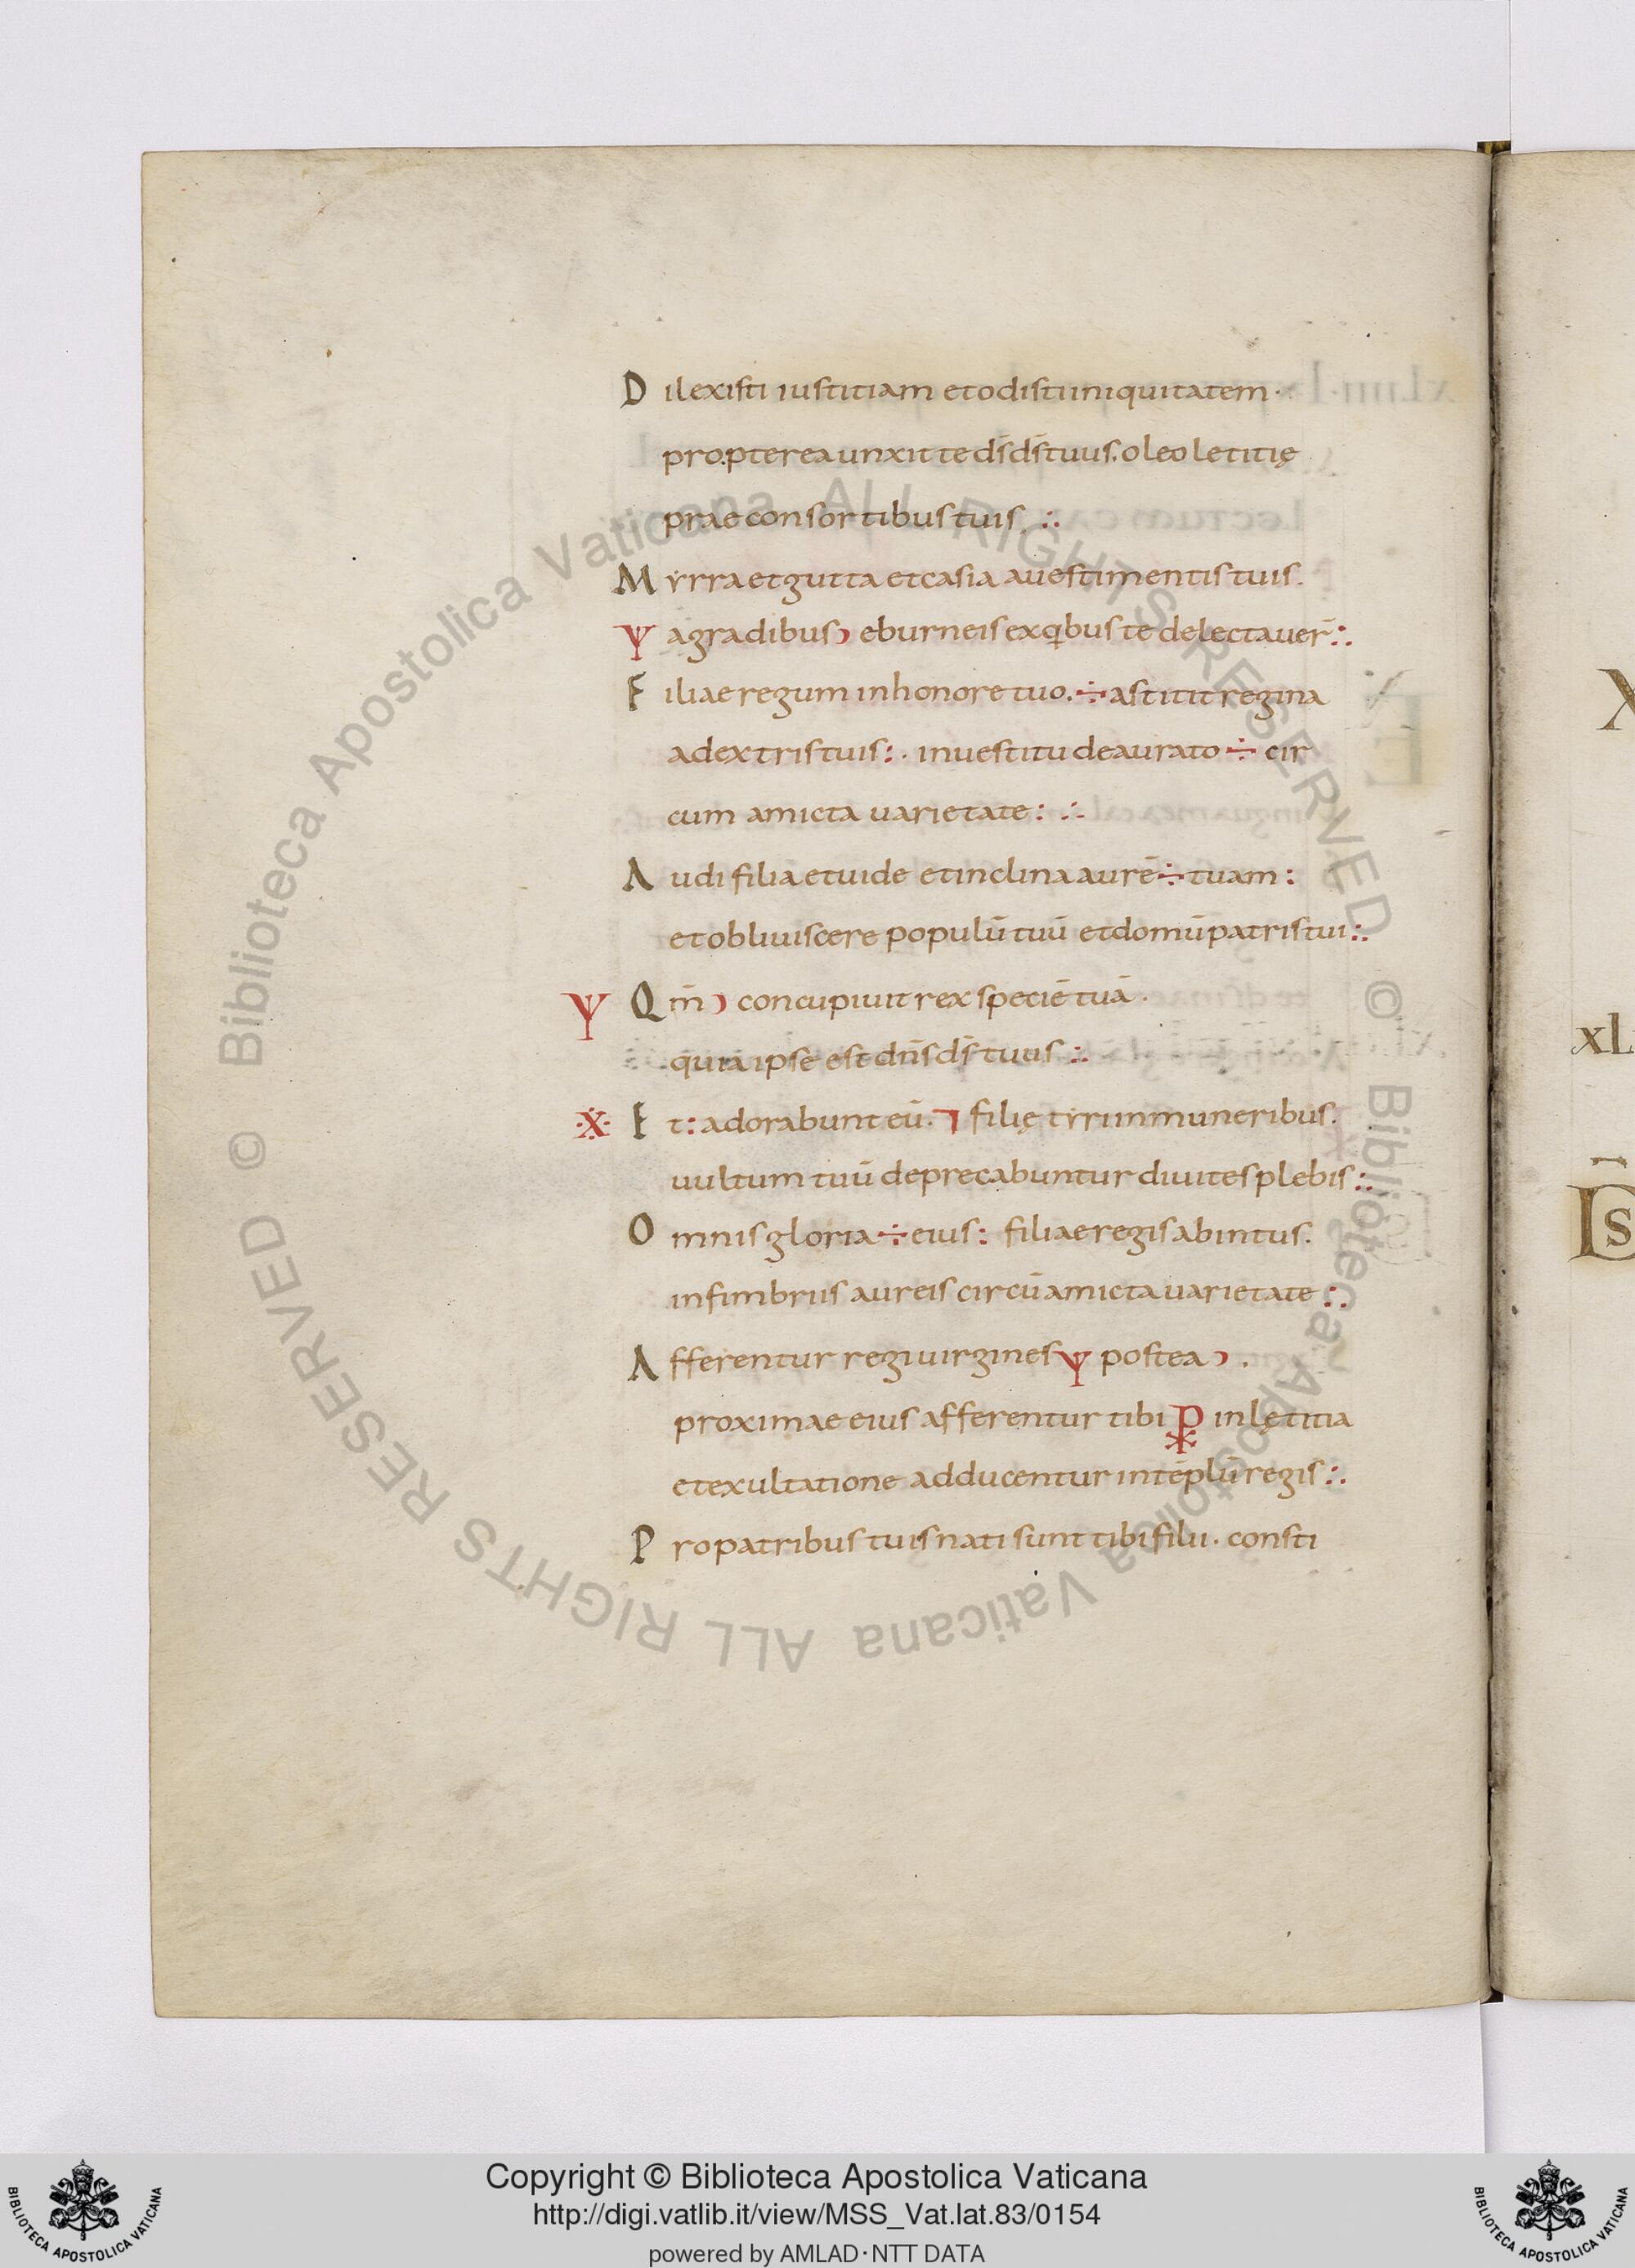 D ilexisti iustitiam et odisti iniquitatem ·
propterea unxit te d̄s d̄s tuus. oleo letitię
prae consortibus tuis ·:·
M yrra et gutta et casia a uestimentis tuis.
Ψ a gradibus ) eburneis ex qibus te delectauer̄ :·
F iliae regum in honore tuo. ÷ astitit regina
a dextris tuis : · in uestitu deaurato ÷ cir
cum amicta uarietate : ·:·
A udi filia et uide et inclina aurē ÷ tuam :
et obliuiscere populū tuū et domū patris tui :·
Ψ Q m̄ ) concupiuit rex speciē tuā ·
quia ipse est dn̄s d̄s tuus ·:·
·X· E t : adorabunt eū. ⁊ filię tyri in muneribus.
uultum tuū deprecabuntur diuites plebis :·
O mnis gloria ÷ eius : filiae regis ab intus.
in fimbriis aureis circū amicta uarietate :·
A fferentur regi uirgines Ψ postea ) .
proximae eius afferentur tibi P in lętitia
et exultatione adducentur in tēplū regis :·
P ro patribus tuis nati sunt tibi filii · consti
X
xL
Copyright © Biblioteca Apostolica Vaticana
http://digi.vatlib.it/view/MSS_Vat.lat.83/0154
powered by AMLAD·NTT DATA
BIBLIOTECA APOSTOLICA VATICANA
BIBLIOTECA APOSTOLICA VATICANA
© Biblioteca Apostolica Vaticana ALL RIGHTS RESERVED © Biblioteca Apostolica Vaticana ALL RIGHTS RESERVED